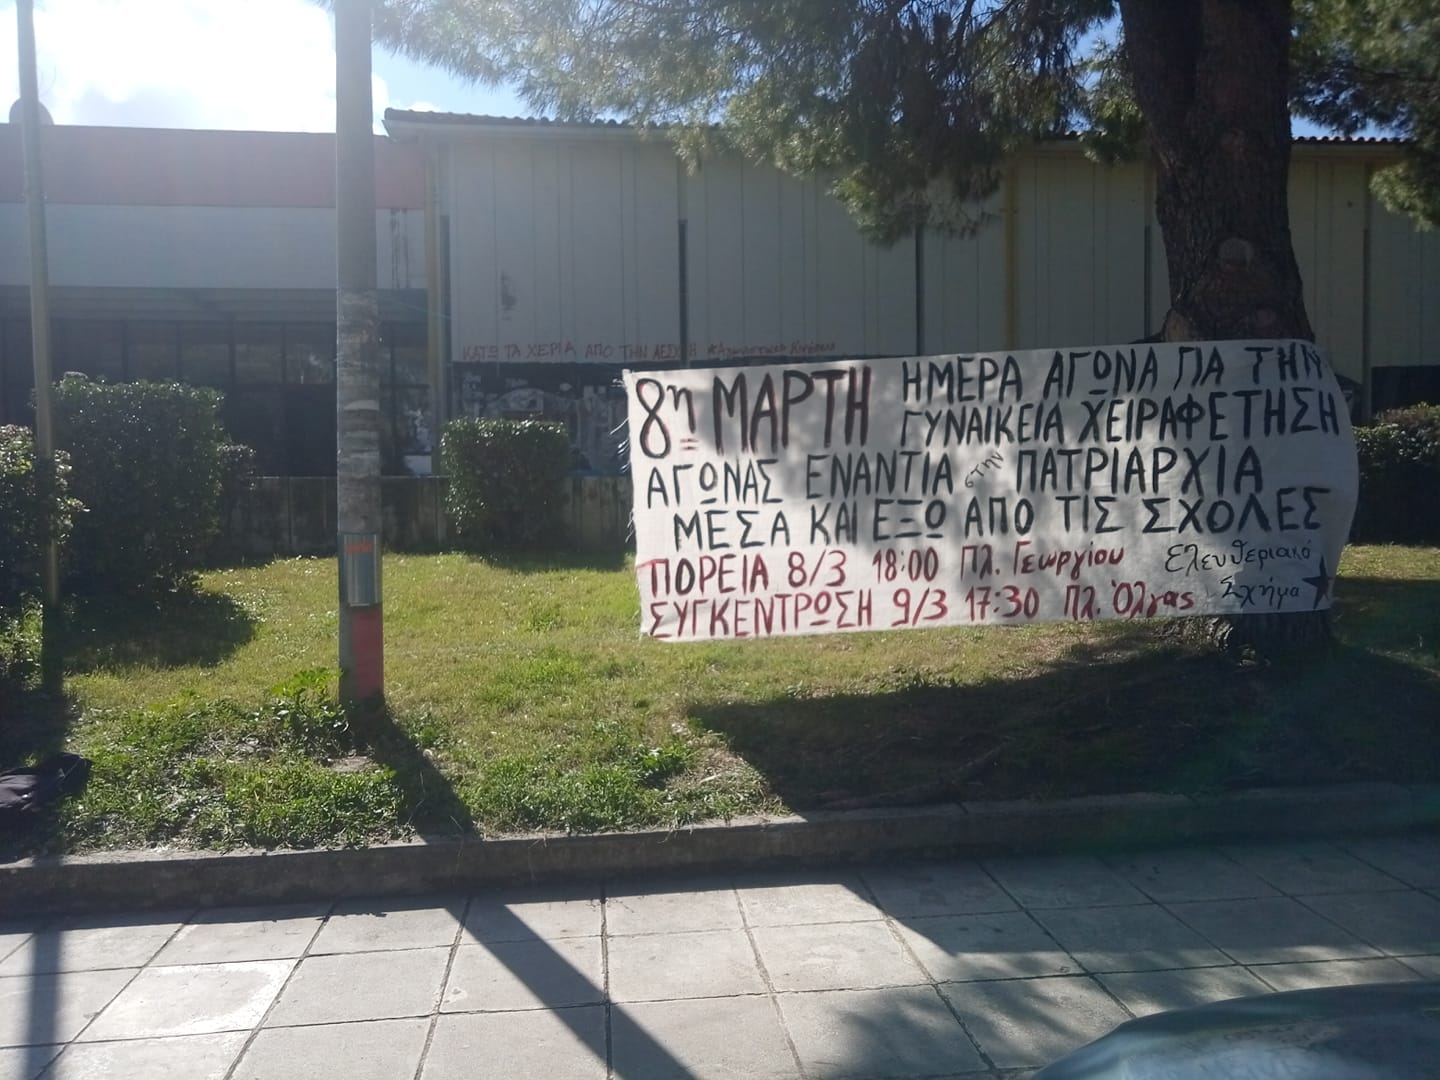 ΚΑΤΩ ΤΑ ΧΕΡΙΑ ΑΠΟ ΤΗΝ ΛΕΣΧΗ
8η ΜΑΡΤΗ
ΗΜΕΡΑ ΑΓΩΝΑ ΓΙΑ ΤΗΝ
ΓΥΝΑΙΚΕΙΑ ΧΕΙΡΑΦΕΤΗΣΗ
ΑΓΩΝΑΣ ΕΝΑΝΤΙΑ στην ΠΑΤΡΙΑΡΧΙΑ
ΜΕΣΑ ΚΑΙ ΕΞΩ ΑΠΟ ΤΙΣ ΣΧΟΛΕΣ
ΠΟΡΕΙΑ 8/3 18:00 Πλ. Γεωργίου
ΣΥΓΚΕΝΤΡΩΣΗ 9/3 17:30 Πλ. Όλγας
Ελευθεριακό
Σχήμα